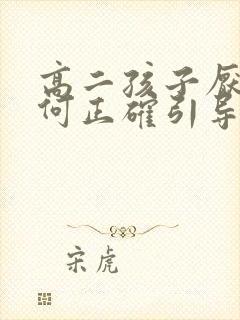 高二孩子厌
何正確引导
宋虎